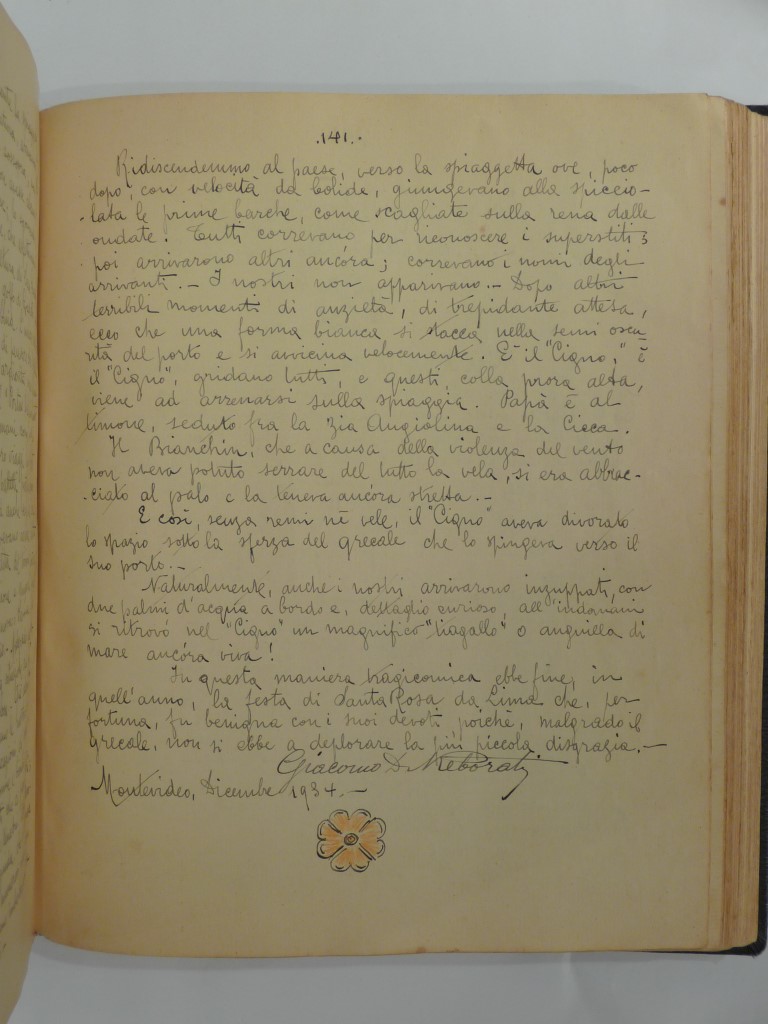 .141.
Ridiscendemmo al paese, verso la spiaggetta ove, poco
dopo, con velocità da bolide, giungevano alla spiccio-
lata le prime barche, come scagliate sulla rena dalle
ondate. Tutti correvano per riconoscere i superstiti;
poi arrivarono altri ancóra; correvano i nomi degli
arrivanti.- I nostri non apparivano.- Dopo altri
terribili momenti di anzietà, di trepidante attesa,
ecco che una forma bianca si stacca nella semi oscu-
rità del porto e si avvicina velocemente. È il "Cigno," è
il "Cigno", gridano tutti, e questi, colla prora alta,
viene ad arrenarsi sulla spiaggia. Papà è al
timone, seduto fra la Zia Angiolina e la Cicca.
Il Bianchin, che a causa della violenza del vento
non aveva potuto serrare del tutto la vela, si era abbrac-
-ciato al palo e la teneva ancóra stretta.-
E così, senza remi nè vele, il "Cigno" aveva divorato
lo spazio sotto la sferza del grecale che lo spingeva verso il
suo porto.-
Naturalmente, anche i nostri arrivarono inzuppati, con
due palmi d'acqua a bordo e, dettaglio curioso, all'indomani
si ritrovò nel "Cigno" un magnifico o anguilla di
mare ancóra viva!
In questa maniera tragicomica ebbe fine, in
quell'anno, la festa di Santa Rosa da Lima che, per
fortuna, fu benigna con i suoi devoti poichè, malgrado il
grecale, non si ebbe a deplorare la più piccola disgrazia.-
Giacomo D. Reborati
Montevideo, Dicembre 1934.-